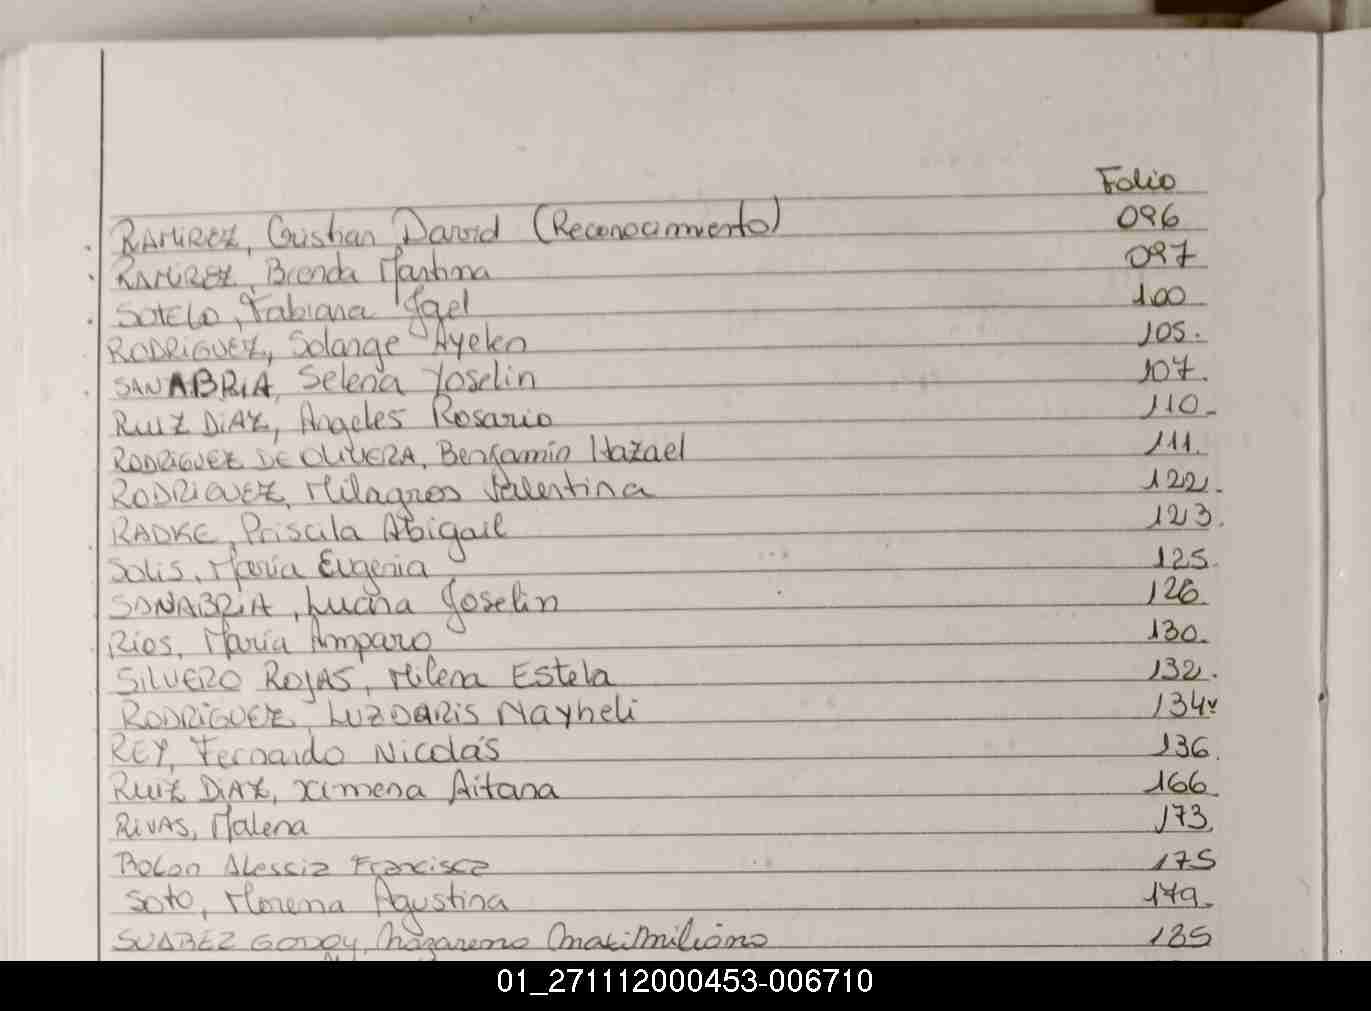 Folio
RAMIREZ, Cristian David (Reconocimiento) 096
RAMIREZ, Brenda Martina 097
SOTELO, Fabiana Jael 100
RODRIGUEZ, Solange Ayelen 105.
SANABRIA, Selena Yoselin 107.
RUIZ DIAZ, Angeles Rosario 110-
RODRIGUEZ DE OLIVERA, Benjamin Hazael 111.
RODRIGUEZ, Milagros Valentina 122.
RADKE, Priscila Abigail 123.
Solis, Maria Eugenia 125.
SANABRIA, Luciana Joselin 126.
Rios, Maria Amparo 130.
SILVERO ROJAS, Milena Estela 132.
RODRIGUEZ LUZDARIS Nayheli 134v
REY, Fernando Nicolás 136.
RUIZ DIAZ, Ximena Aitana 166.
RIVAS, Malena 173.
Bolon Alessia Francisca 175
Soto, Morena Agustina 179.
SUAREZ GODOY, Nazareno Maximiliano 185
01_271112000453-006710